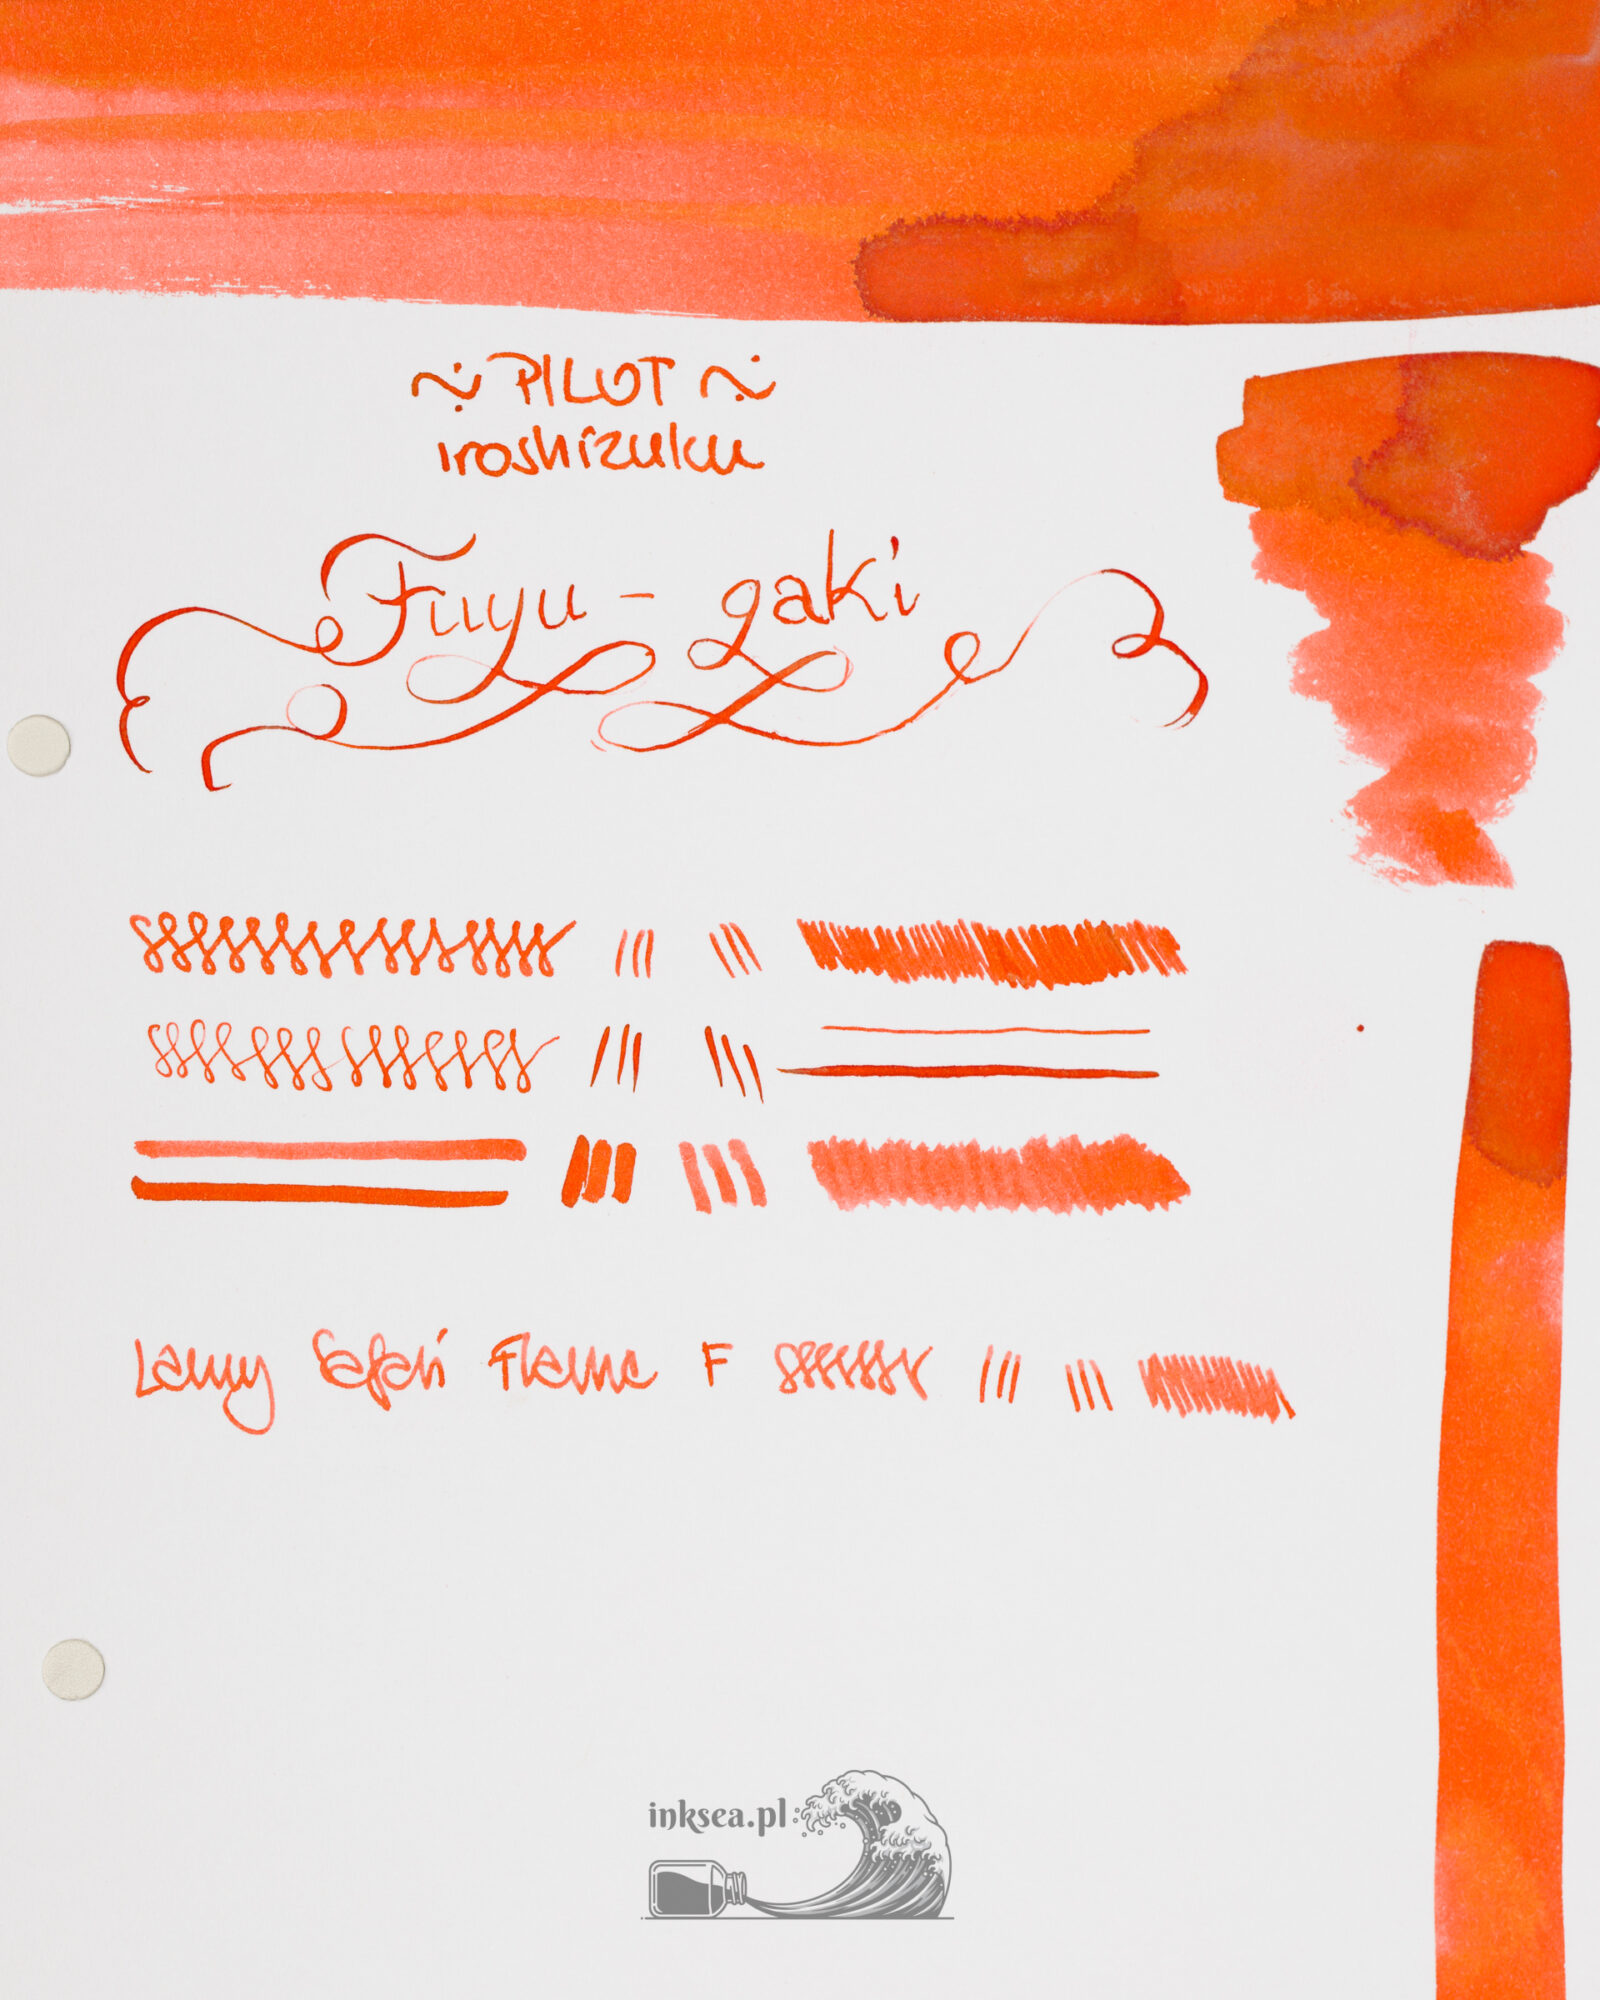 ~ PILOT ~
iroshizuku
Fuyu - gaki
Lamy Safari Flame F
inksea.pl